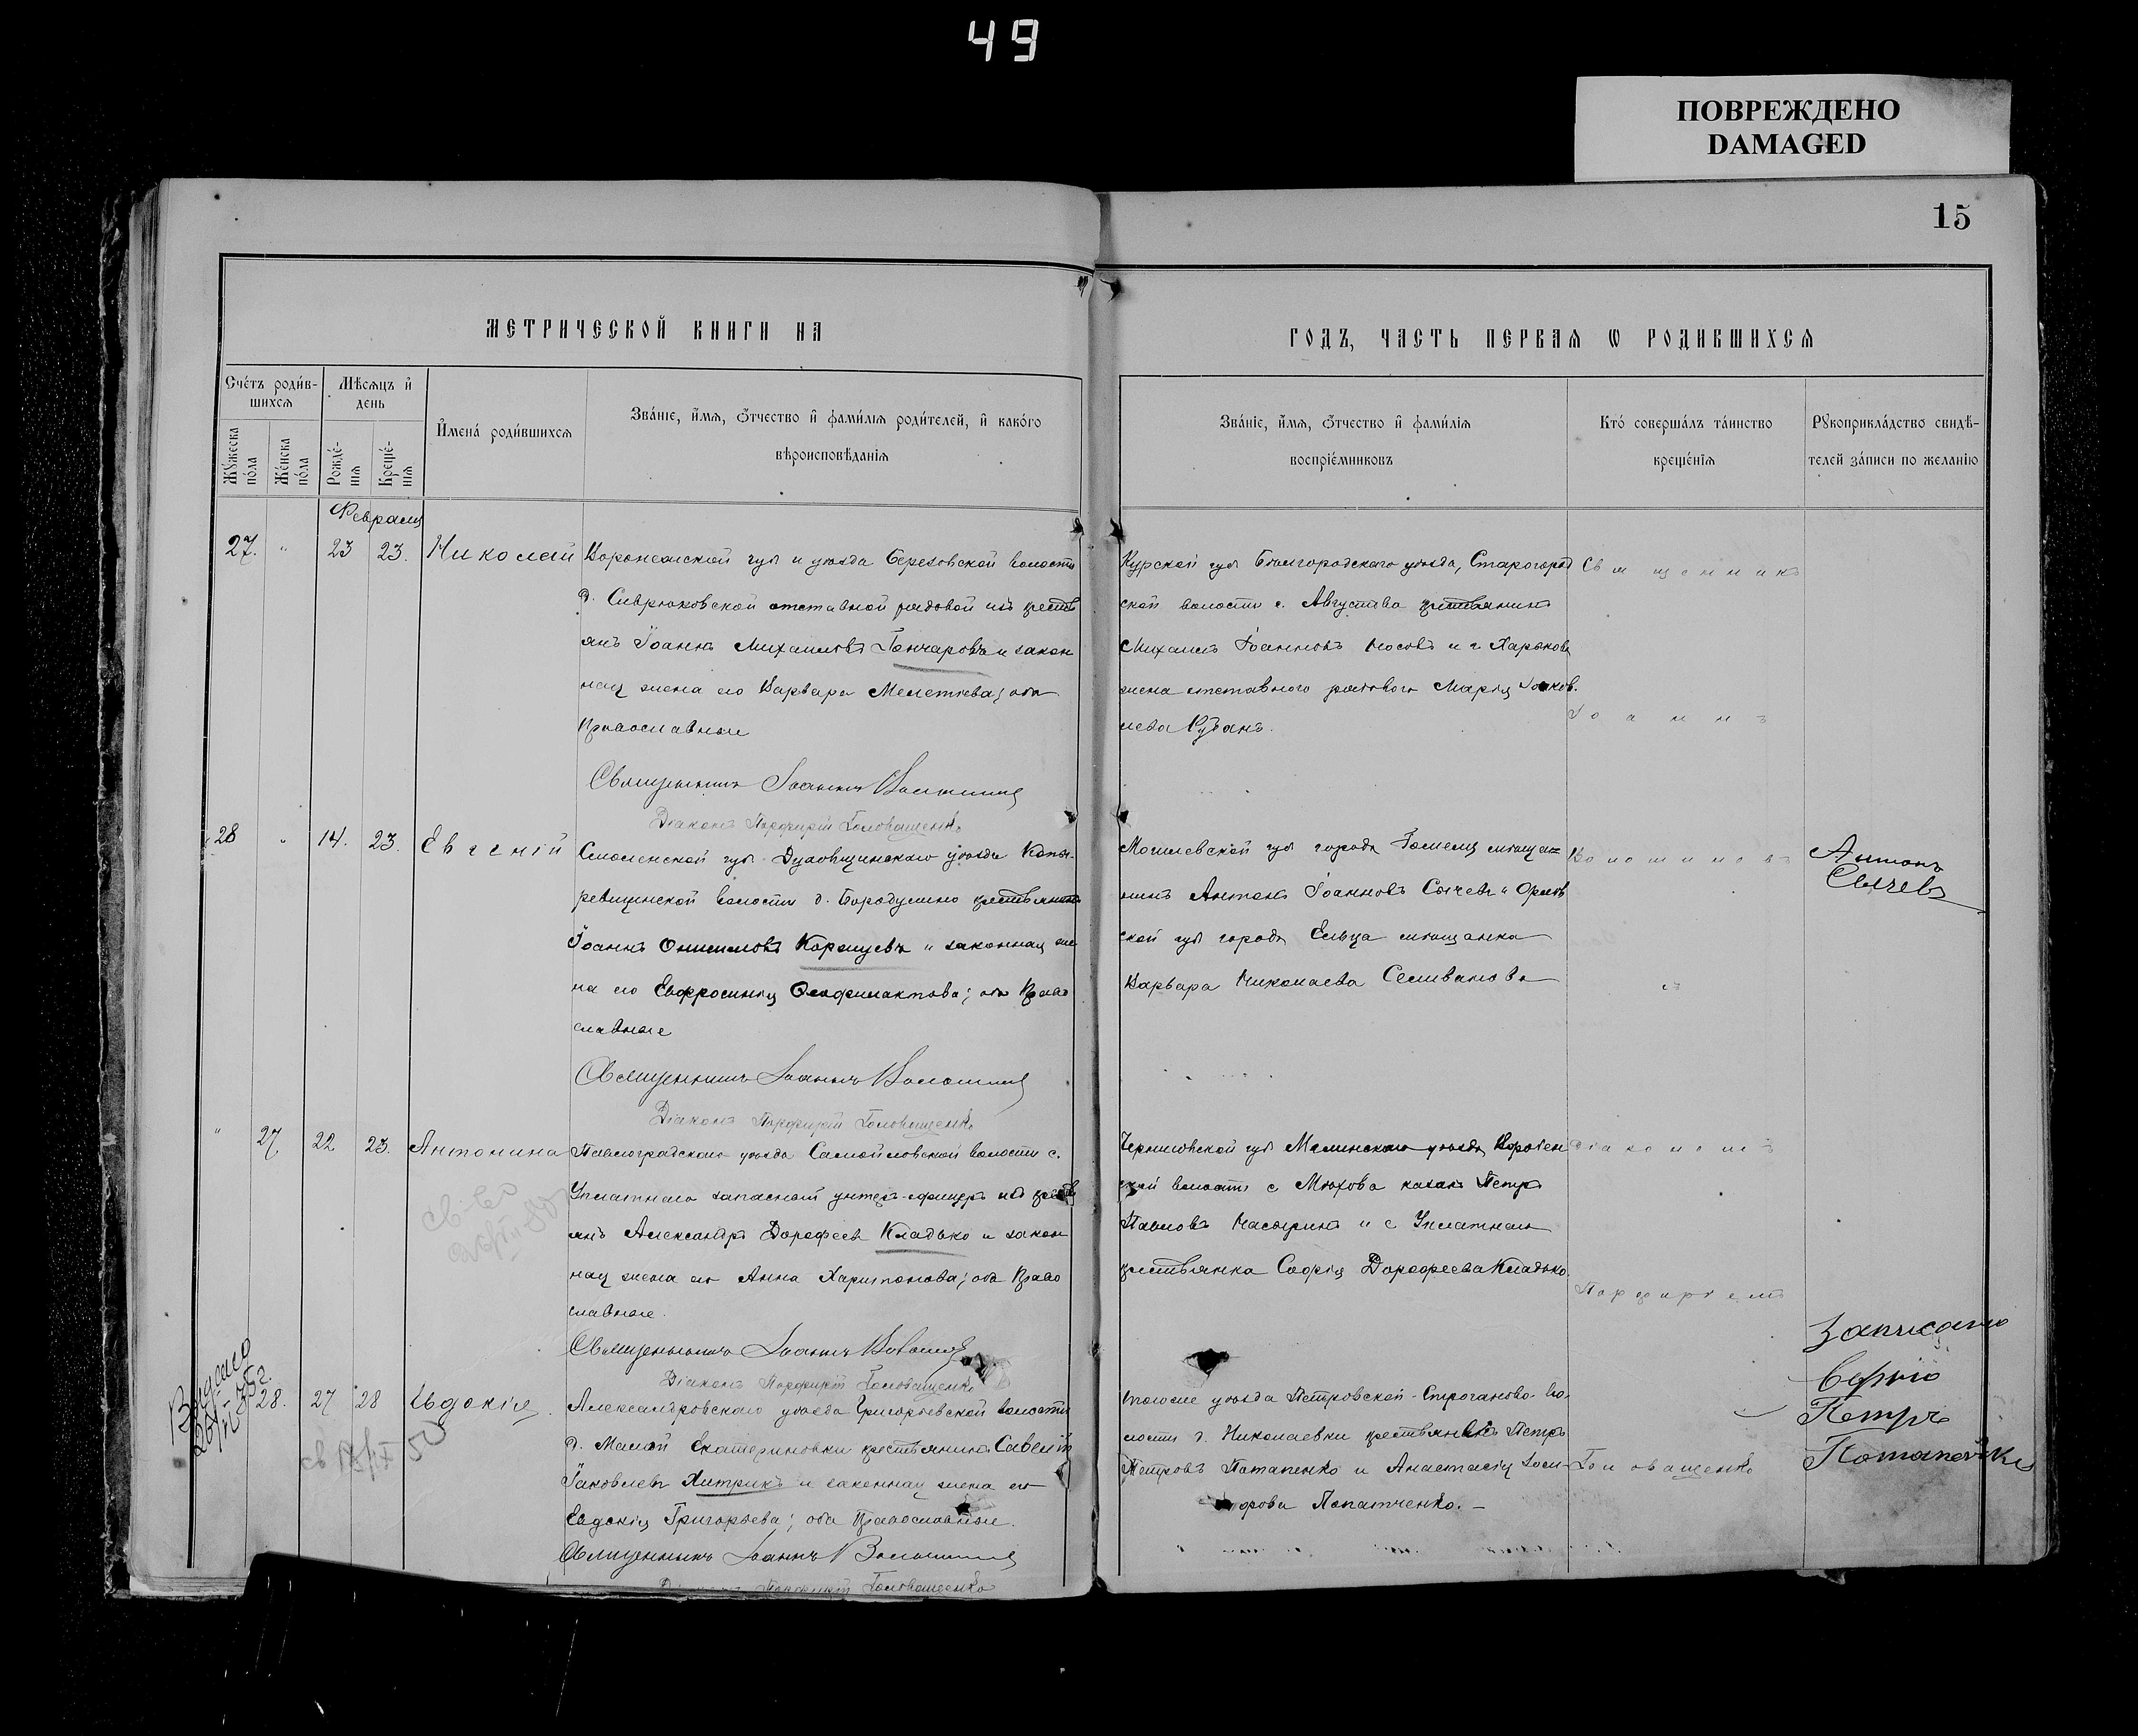 49
ПОВРЕЖДЕНО
DAMAGED
15
МЕТРИЧЕСКОЙ КНИГИ НА
ГОДЪ, ЧАСТЬ ПЕРВАѦ Ѡ РОДИВШИХСѦ
Счéтъ роди́в-
шихсѧ
Мѣсѧцъ и҆
день
Мꙋжеска
по́ла
Же́нска
по́ла
Рожде́-
нїѧ
Креще́-
нїѧ
И҆мена́ роди́вшихсѧ
Зва́нїе, и҆́мѧ, ѻ҆́тчество и҆ фами́лїѧ роди́телей, и҆ како́го
вѣроисповѣ́данїѧ
Зва́нїе, и҆́мѧ, ѻ҆́тчество и҆ фами́лїѧ
воспрїе́мниковъ
Кто́ соверша́лъ та́инство
креще́нїѧ
Рꙋкоприкла́дство свидѣ́-
телей за́писи по жела́нїю
Февраля
27. " 23 23. Николай
Воронежской губ и уѣзда Березовской волости
д. отставной рядовой изъ крестья
янъ Іоаннъ Михаиловъ Гончаровъ и закон
ная жена его Варвара Мелетіева; оба
Православные
Священникъ Іоаннъ Волошинъ
Діаконъ Порфирій Головащенко
Курской губ Бѣлгородскаго уѣзда, Старогород
ской волости с. Августова крестьянинъ
Михаилъ Іоанновъ Носовъ и г Харькова
жена отставного рядового Марія Іаков.
лева
Священникъ
Іоаннъ
28 " 14. 23. Евгеній
Смоленской губ. Духовщинскаго уѣзда Копы-
ревщинской волости д. Бородулино крестьянинъ
Іоаннъ Онисимовъ и законная же
на его Евфросинія Ѳеофилактова; оба Право
славные
Священникъ Іоаннъ Волошинъ
Діаконъ Порфирій Головащенко
Могилевской губ города Гомеля мѣща=
нинъ Антонъ Іоанновъ Сычевъ и Орлов
ской губ города Ельца мѣщанка
Варвара Николаева Селиванова
Волошиновъ
съ
Антонъ
Сычевъ
" 27. 22 23. Антонина
Павлоградскаго уѣзда Самойловской волости с.
запасный унтеръ-офицеръ изъ крестья
янъ Александръ Дорофеевъ Кладько и закон
ная жена его Анна Харитонова; оба Право
славные.
Священникъ Іоаннъ Волошинъ
Діаконъ Порфирій Головащенко
Черниговской губ Мглинскаго уѣзда
ской волости с козакъ Петръ
Павловъ и с
крестьянка Софія Дорофеева Кладько.
діакономъ
Порфиріемъ
28. 27 28 Евдокія
Александровскаго уѣзда Григорьевской волости
д. Малой Екатериновки крестьянинъ Савелій
Іаковлевъ Хитрикъ и законная жена его
Евдокія Григорьева; оба Православные.
Священникъ Іоаннъ Волошинъ
Діаконъ Порфирій Головащенко
того же уѣзда Петровской-Строганово во-
лости д. Николаевки крестьянинъ Петръ
Петровъ Потапенко и Анастасія
Лопатченко. –
Головащенко
Записано
верно
Петръ
Потапенко